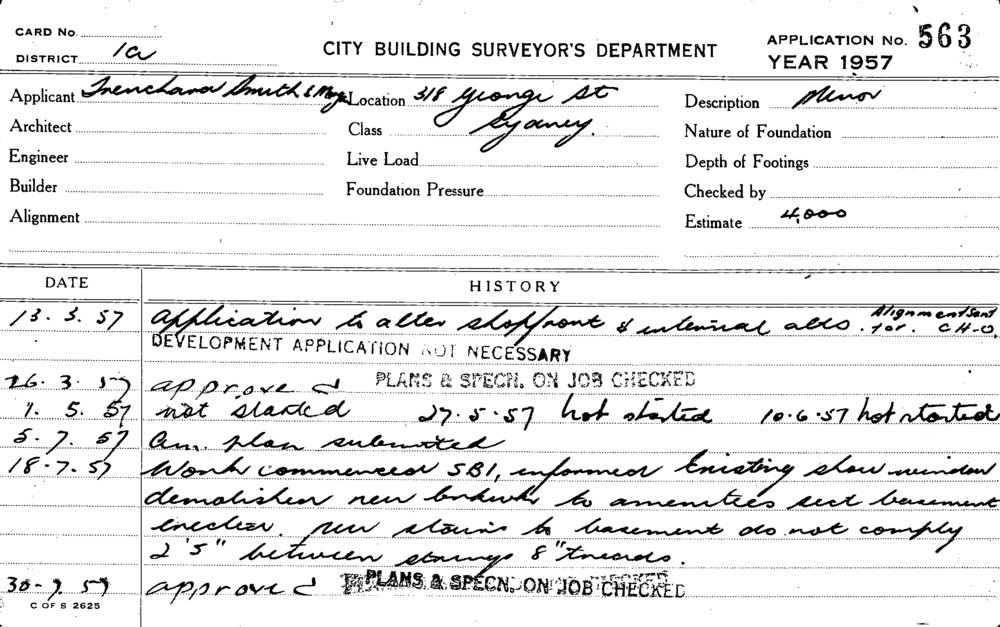 CARD No.
DISTRICT 1a
CITY BUILDING SURVEYOR'S DEPARTMENT
APPLICATION No. 563
YEAR 1957
Applicant Trenchard Smith & Location 318 George St Description Minor
Architect Class Sydney. Nature of Foundation
Engineer Live Load Depth of Footings
Builder Foundation Pressure Checked by
Alignment Estimate 4,000
DATE HISTORY
13.3.57 Application to alter shopfront & internal alts. Alignment sent for. C.H.O.
DEVELOPMENT APPLICATION NOT NECESSARY
26.3.57 approved PLANS & SPECN. ON JOB CHECKED
1.5.57 not started 27.5.57 not started 10.6.57 not started
5.7.57 Am. plan submitted
18.7.57 Work commenced SBI, informed Existing show window
demolished new brickwk to amenities sect basement
erected. new stairs to basement do not comply
2'5" between strings 8" treads.
30.7.57 approved PLANS & SPECN. ON JOB CHECKED
C OF S 2625